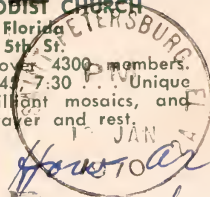 ODIST CHURCH
Florida
5th St.
over 4300 members.
7:30 . . . Unique
illiant mosaics, and
rayer and rest.
PETERSBURG
PM
JAN
How ar